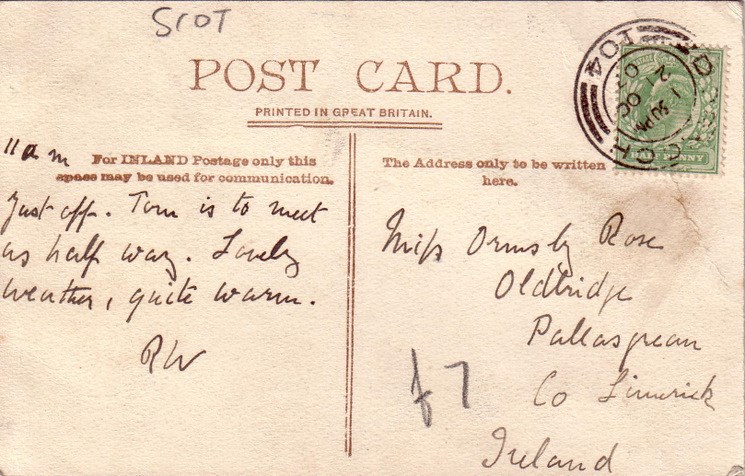 SCOT
POST CARD.
PRINTED IN GREAT BRITAIN.
For INLAND Postage only this
space may be used for communication.
The Address only to be written
here.
11 am
Just off. Tom is to meet
us half way. Lovely
weather, quite warm.
RW
Miss Ormsby Rose
Oldbridge
Pallasgrean
Co Limerick
Ireland
£7
104
PENNY